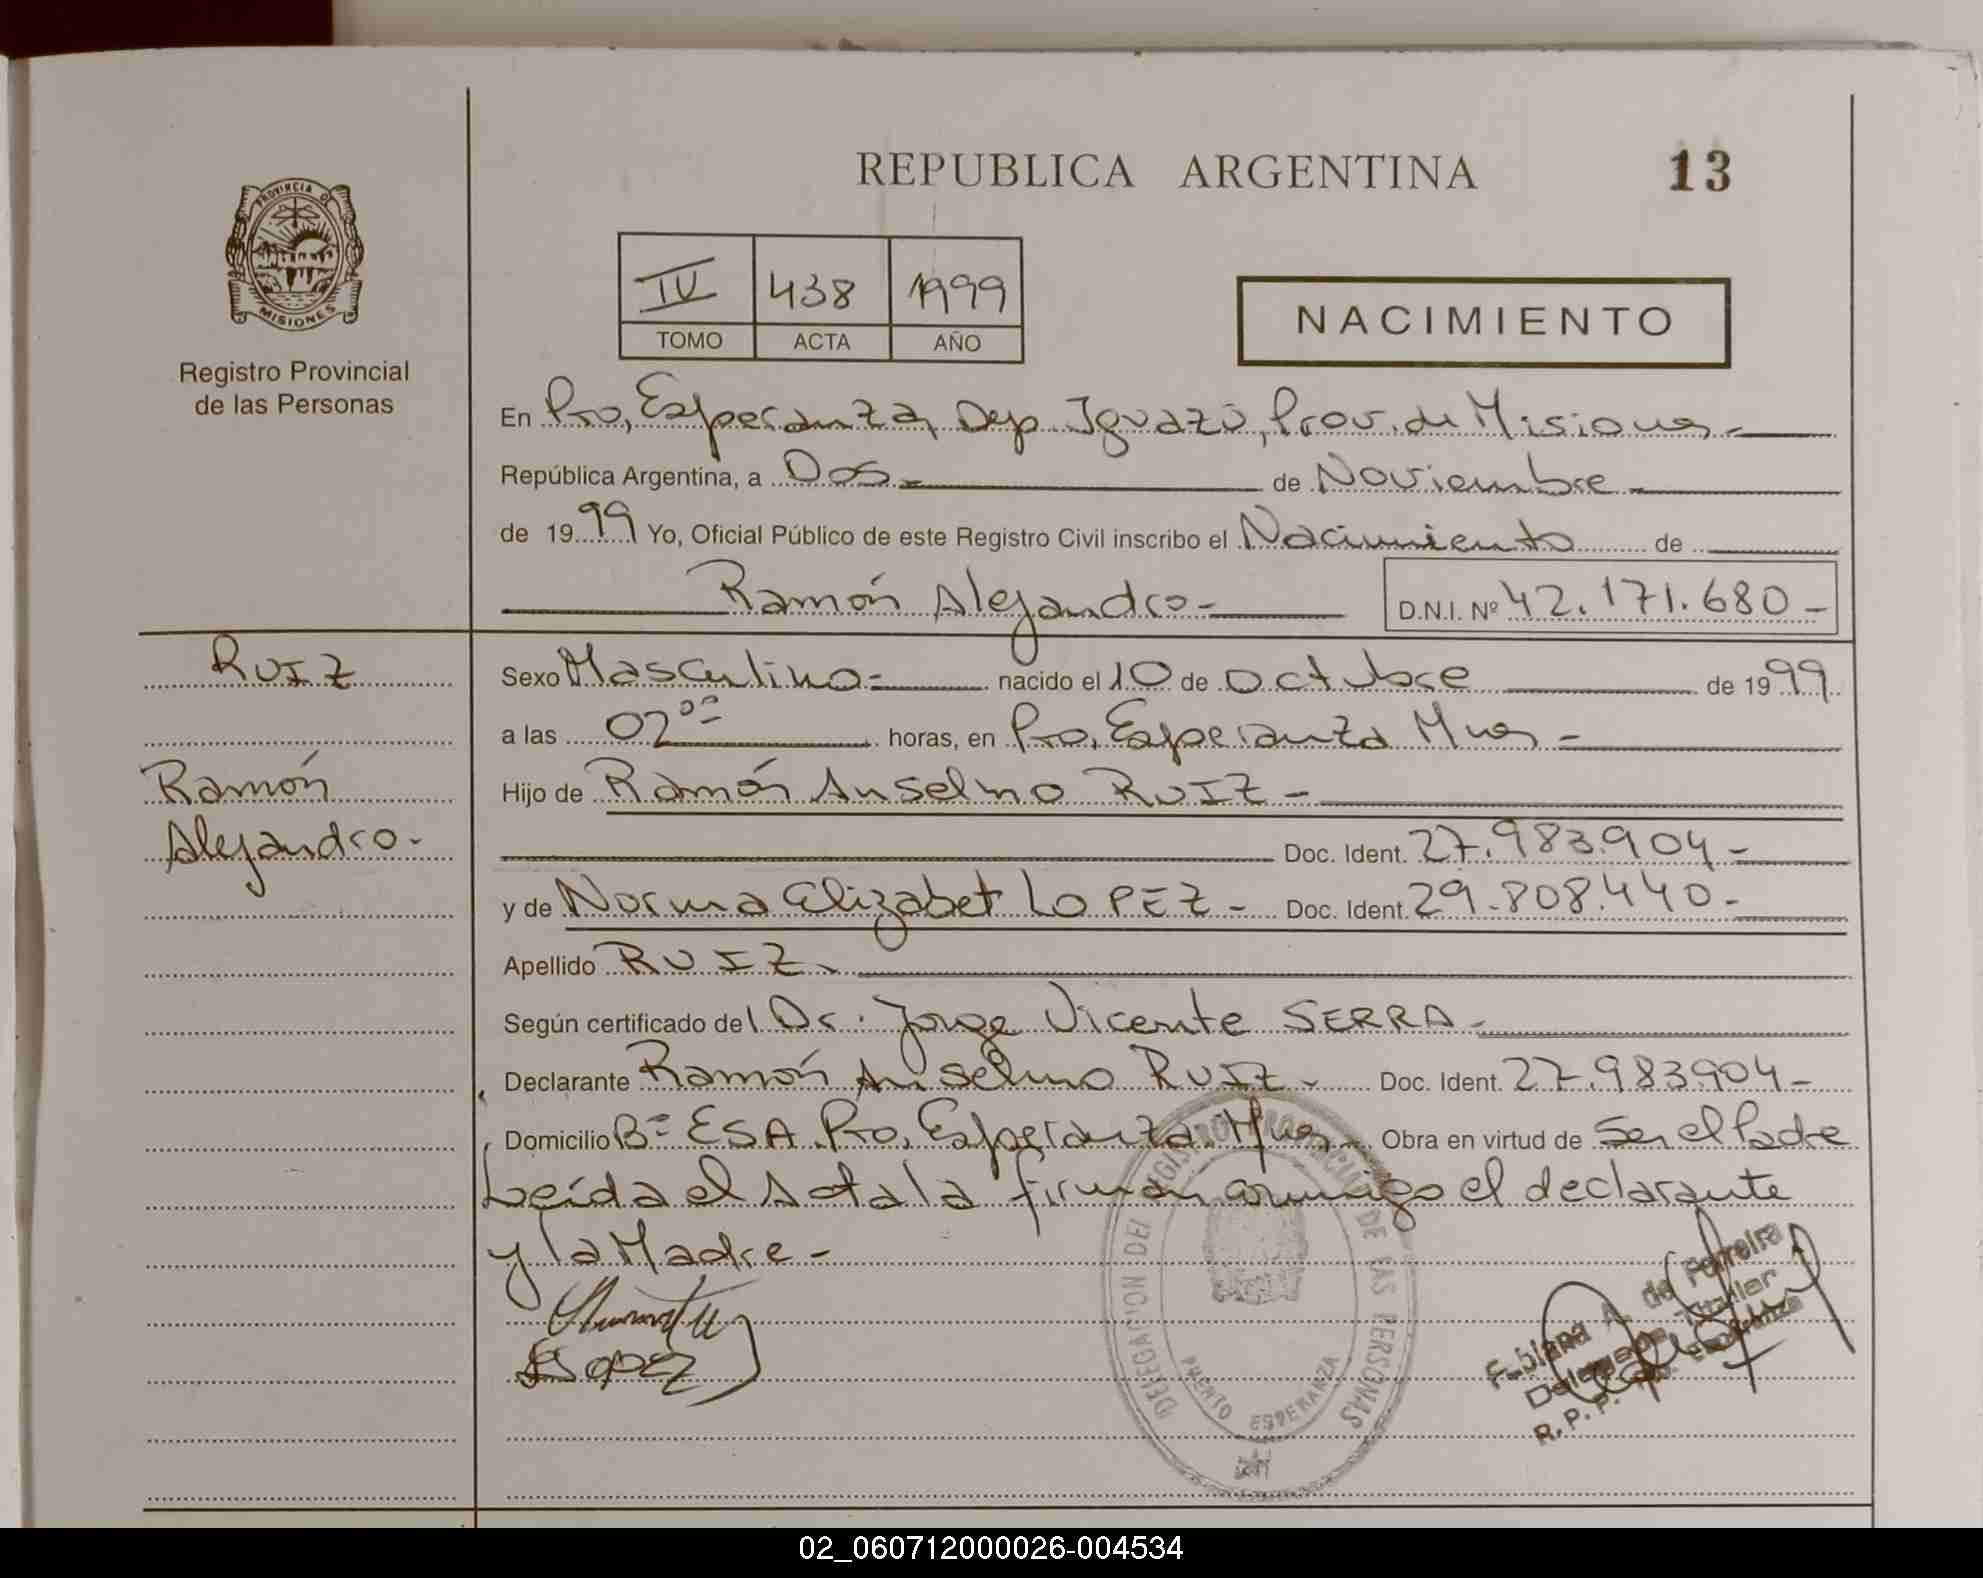 REPUBLICA ARGENTINA 13
PROVINCIA DE MISIONES
Registro Provincial
de las Personas
IV 438 1999
TOMO ACTA AÑO
NACIMIENTO
En Pto, Esperanza, Dep. Iguazú, Prov. de Misiones -
República Argentina, a Dos - de Noviembre -
de 1999 Yo, Oficial Público de este Registro Civil inscribo el Nacimiento de
Ramón Alejandro - D.N.I. Nº 42.171.680 -
RUIZ
Ramón
Alejandro -
Sexo Masculino - nacido el 10 de octubre de 1999
a las 02 00 horas, en Pto, Esperanza Mnes -
Hijo de Ramón Anselmo RUIZ -
Doc. Ident. 27.983.904 -
y de Norma Elizabet LOPEZ - Doc. Ident. 29.808.440 -
Apellido RUIZ -
Según certificado del Dr. Jorge Vicente SERRA -
Declarante Ramón Anselmo RUIZ - Doc. Ident. 27.983904 -
Domicilio Bº ESA Pto, Esperanza Mnes - Obra en virtud de Ser el Padre
Leída el Acta la firman conmigo el declarante
y la Madre -
LOPEZ
DELEGACION DEL REGISTRO PROVINCIAL DE LAS PERSONAS
PUERTO ESPERANZA
Fabiana A. de Ferreira
Delegada Titular
R.P.P. Pto. Esperanza
02_060712000026-004534